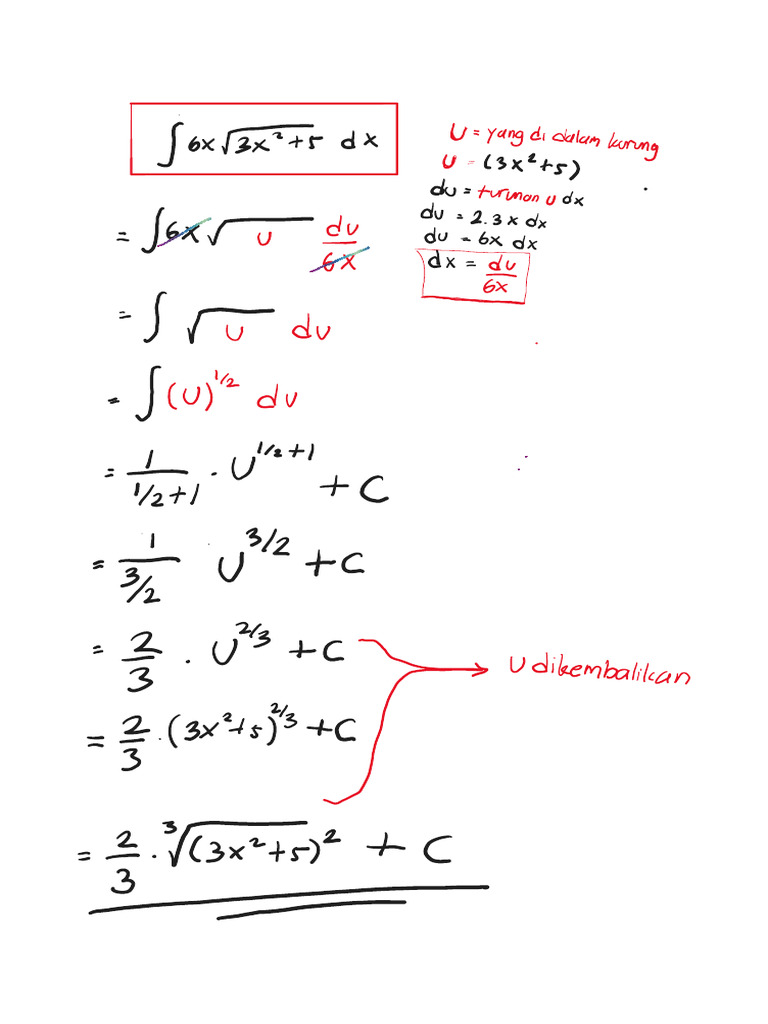 ∫ 6x √(3x² + 5) dx
U = yang di dalam kurung
U = (3x² + 5)
du = turunan u dx
du = 2.3x dx
du = 6x dx
dx = du/6x
= ∫ 6x √U du/6x
= ∫ √U du
= ∫ (U)^1/2 du
= 1/(1/2+1) . U^(1/2+1) + C
= 1/(3/2) U^3/2 + C
= 2/3 . U^2/3 + C
U dikembalikan
= 2/3 . (3x² + 5)^2/3 + C
= 2/3 . ³√(3x² + 5)² + C